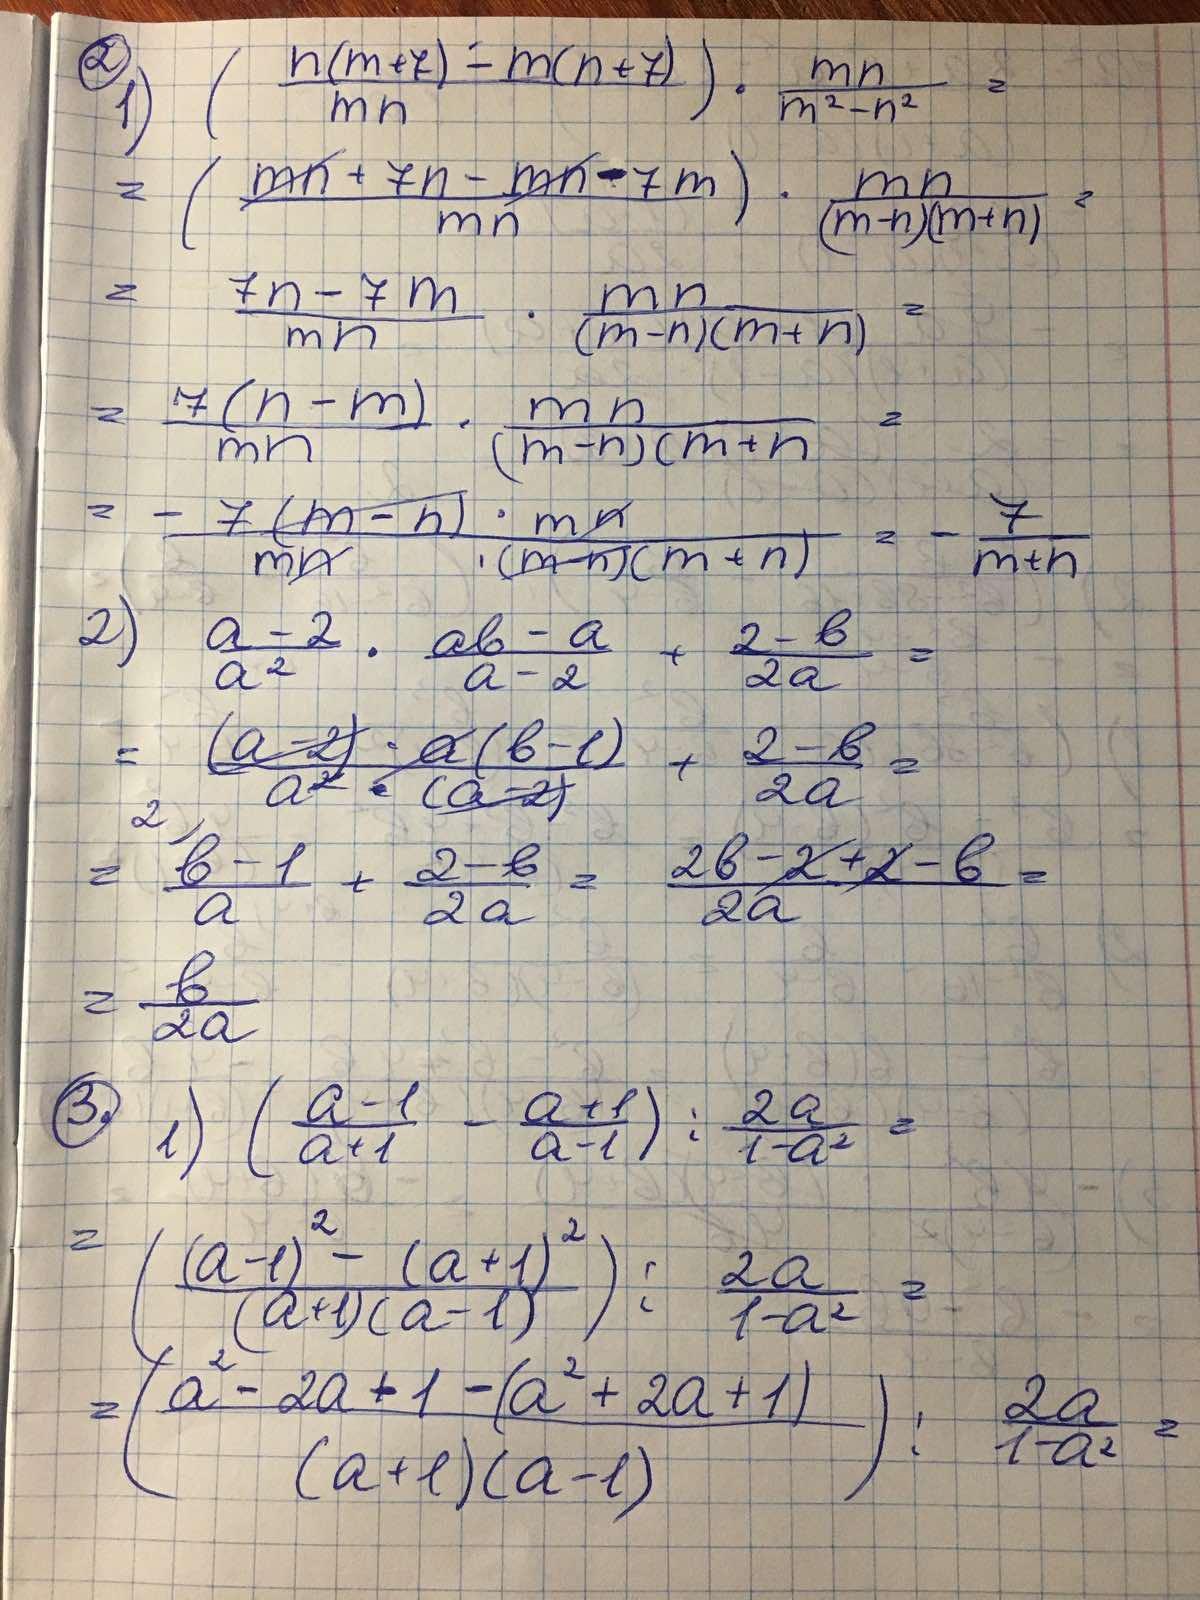 ②
1) ( (n(m+7) - m(n+7))/(mn) ) · (mn)/(m²-n²) =
= ( (mn + 7n - mn - 7m)/(mn) ) · (mn)/((m-n)(m+n)) =
= (7n - 7m)/(mn) · (mn)/((m-n)(m+n)) =
= (7(n-m))/(mn) · (mn)/((m-n)(m+n =
= - (7(m-n) · mn)/(mn · (m-n)(m+n)) = - 7/(m+n)
2) (a-2)/a² · (ab-a)/(a-2) + (2-b)/(2a) =
= ((a-2) · a(b-1))/(a² · (a-2)) + (2-b)/(2a) =
= ²⁾ (b-1)/a + (2-b)/(2a) = (2b-2+2-b)/(2a) =
= b/(2a)
③.
1) ( (a-1)/(a+1) - (a+1)/(a-1) ) : (2a)/(1-a²) =
= ( ((a-1)² - (a+1)²)/((a+1)(a-1)) ) : (2a)/(1-a²) =
= ( (a² - 2a + 1 - (a² + 2a + 1))/((a+1)(a-1)) ) : (2a)/(1-a²) =